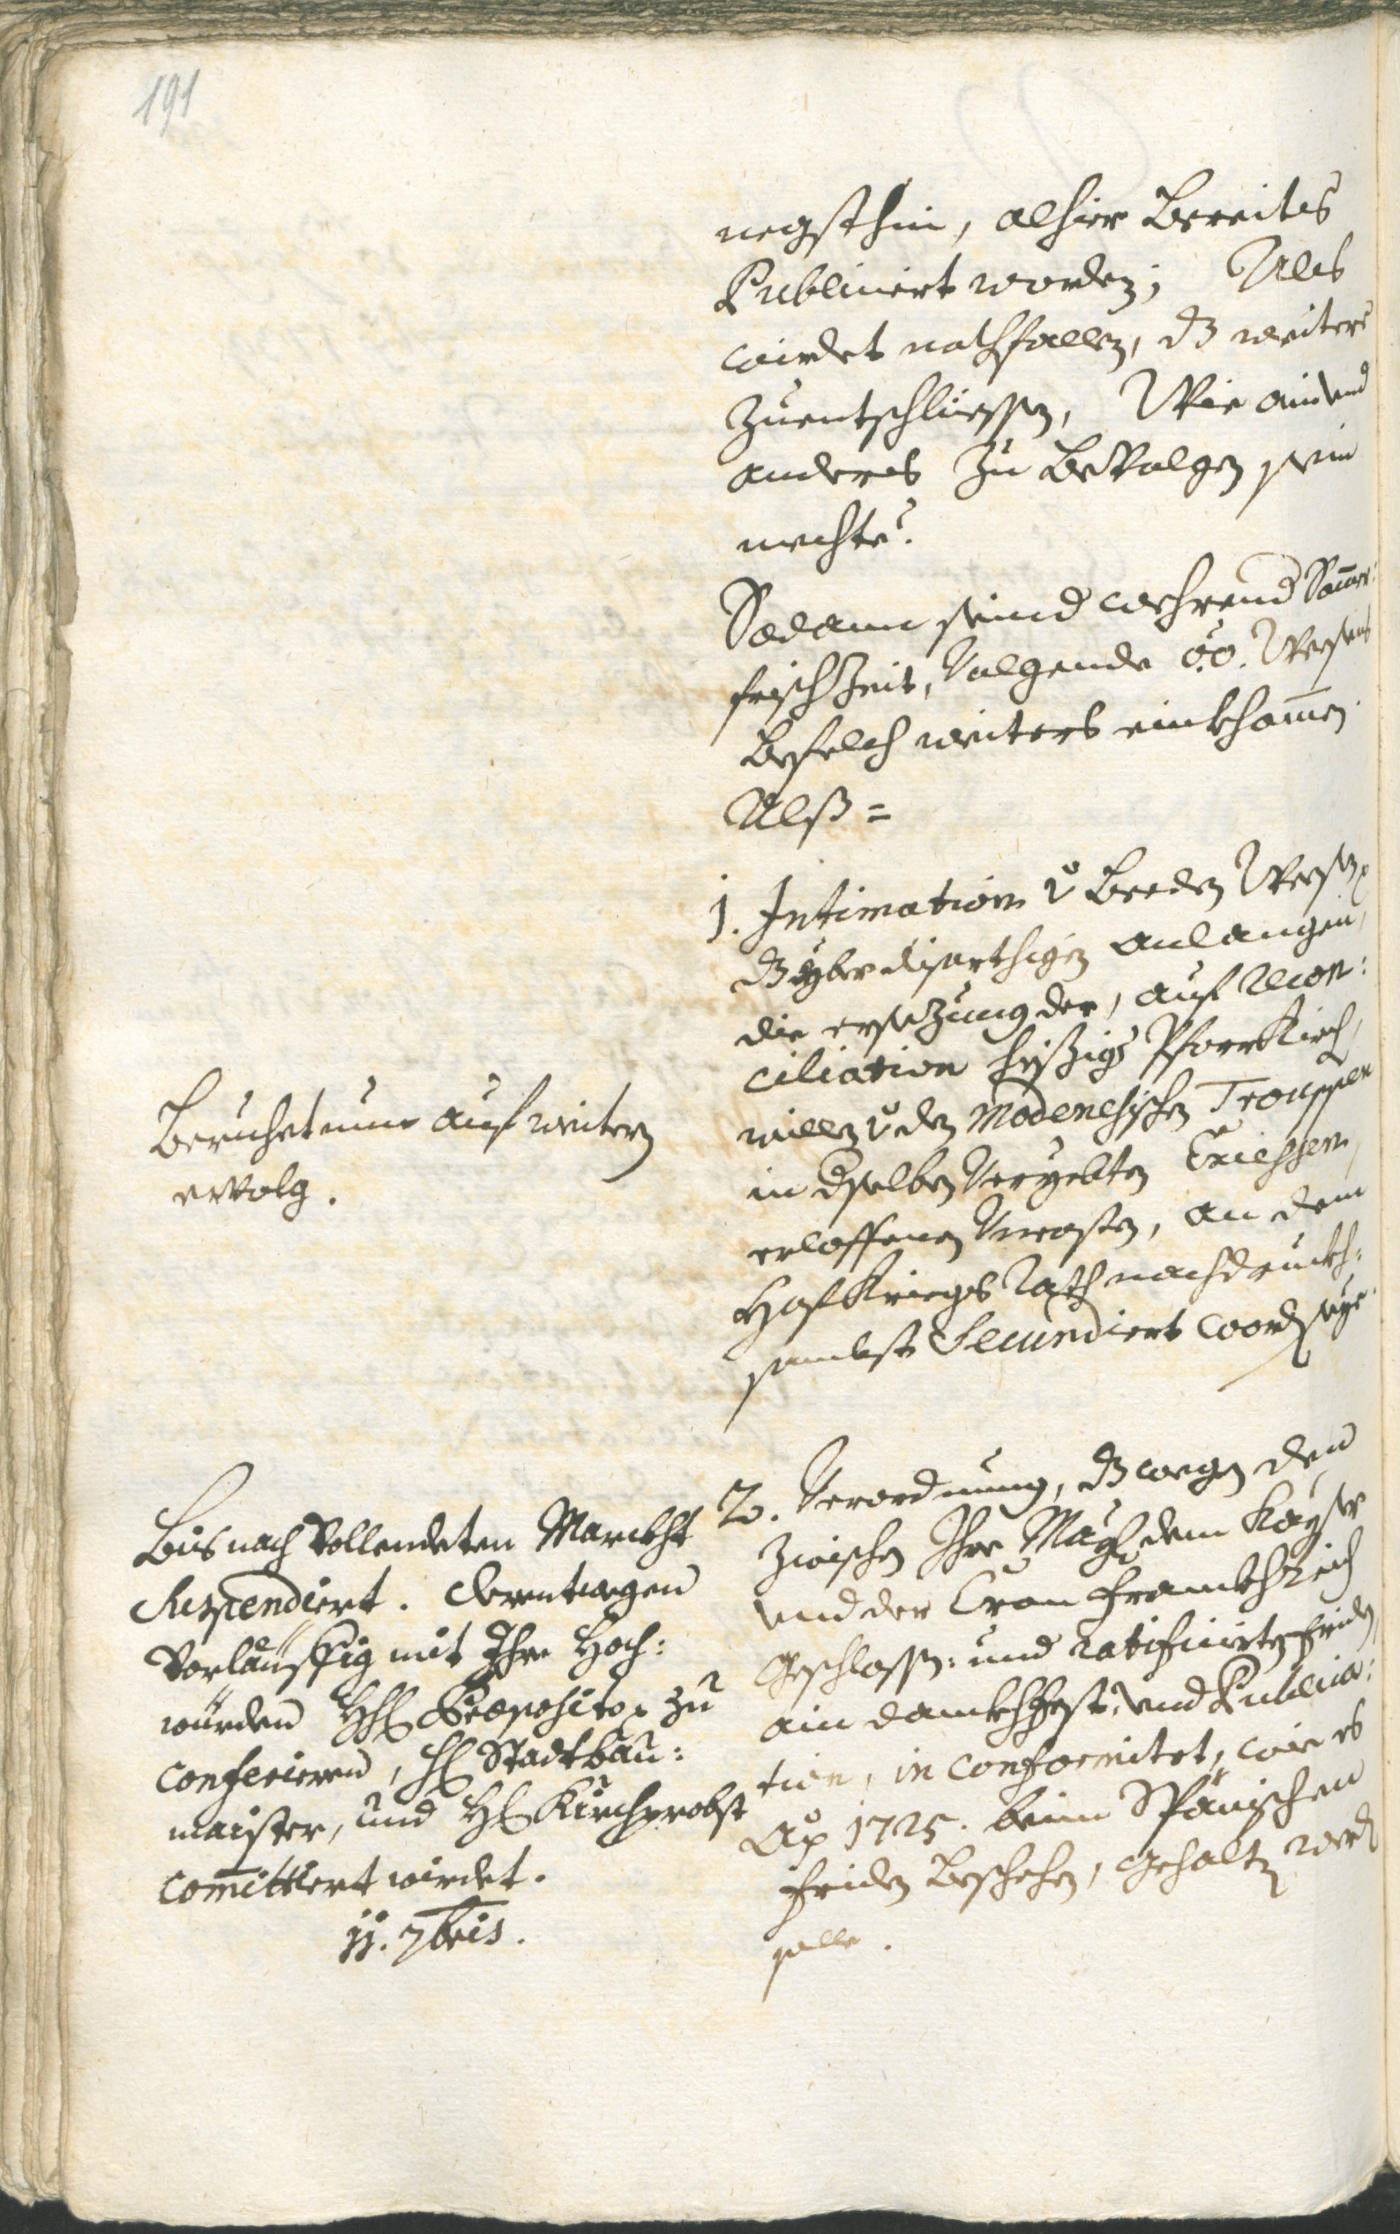 191
negsthin, alhier Bereites
Publiciert worden; Alls
wirdet nothfallen, dz weitere
zuentschliessen, Wie ain vnd
anderes zu bevolgen sein
mechte?
Sodann seind wehrend Sommer:
frisch Zeit, Volgende o: o: Wesens
Befelch weiters einkhommen.
Alß =
1. Intimation v Beeden Wesen,
dz yber diserthigen anlangen,
die ersezung der, auf Recon:
ciliation hießiger Pfarrkirch,
willen v den Modenesischen Trouppen
in dselben Veryebten Excessen,
erloffenen Vncosten, an dem
Hof Kriegs Rath nachdruckh:
sambst Secundiert worden seye.
Beruhet nun auf weitern
ervolg.
2. Verordnung, dz wegen den
zwischen Ihro Mayt dem Kayser
vnd der Cron Frankhreich
geschlossen: und ratificierten friden,
ain Dankhfest, vnd Publica:
tion, in conformitet, wie es
Ao 1725. beim Spänischen
friden beschehen, gehalten werden
solle.
Bis nach Vollendeten Marckht
suspendiert. derentwegen
Vorläuffig mit Ihro Hoch:
würden Hhl Praeposito zu
conferieren, Hl Stadtbau:
maister, und Hl Kirchprobst
committiert wirdet.
11. 7bris.